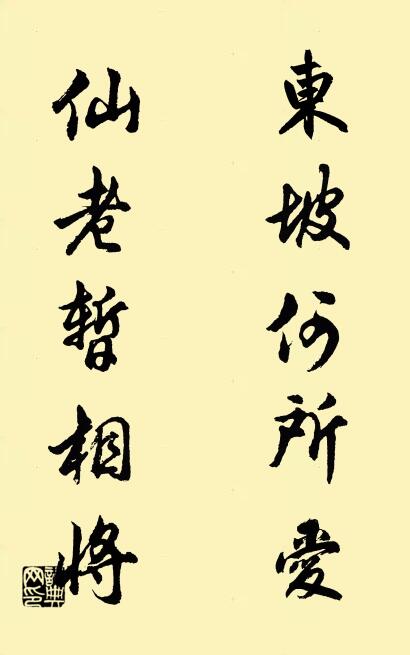 東坡何所愛
仙老暫相將